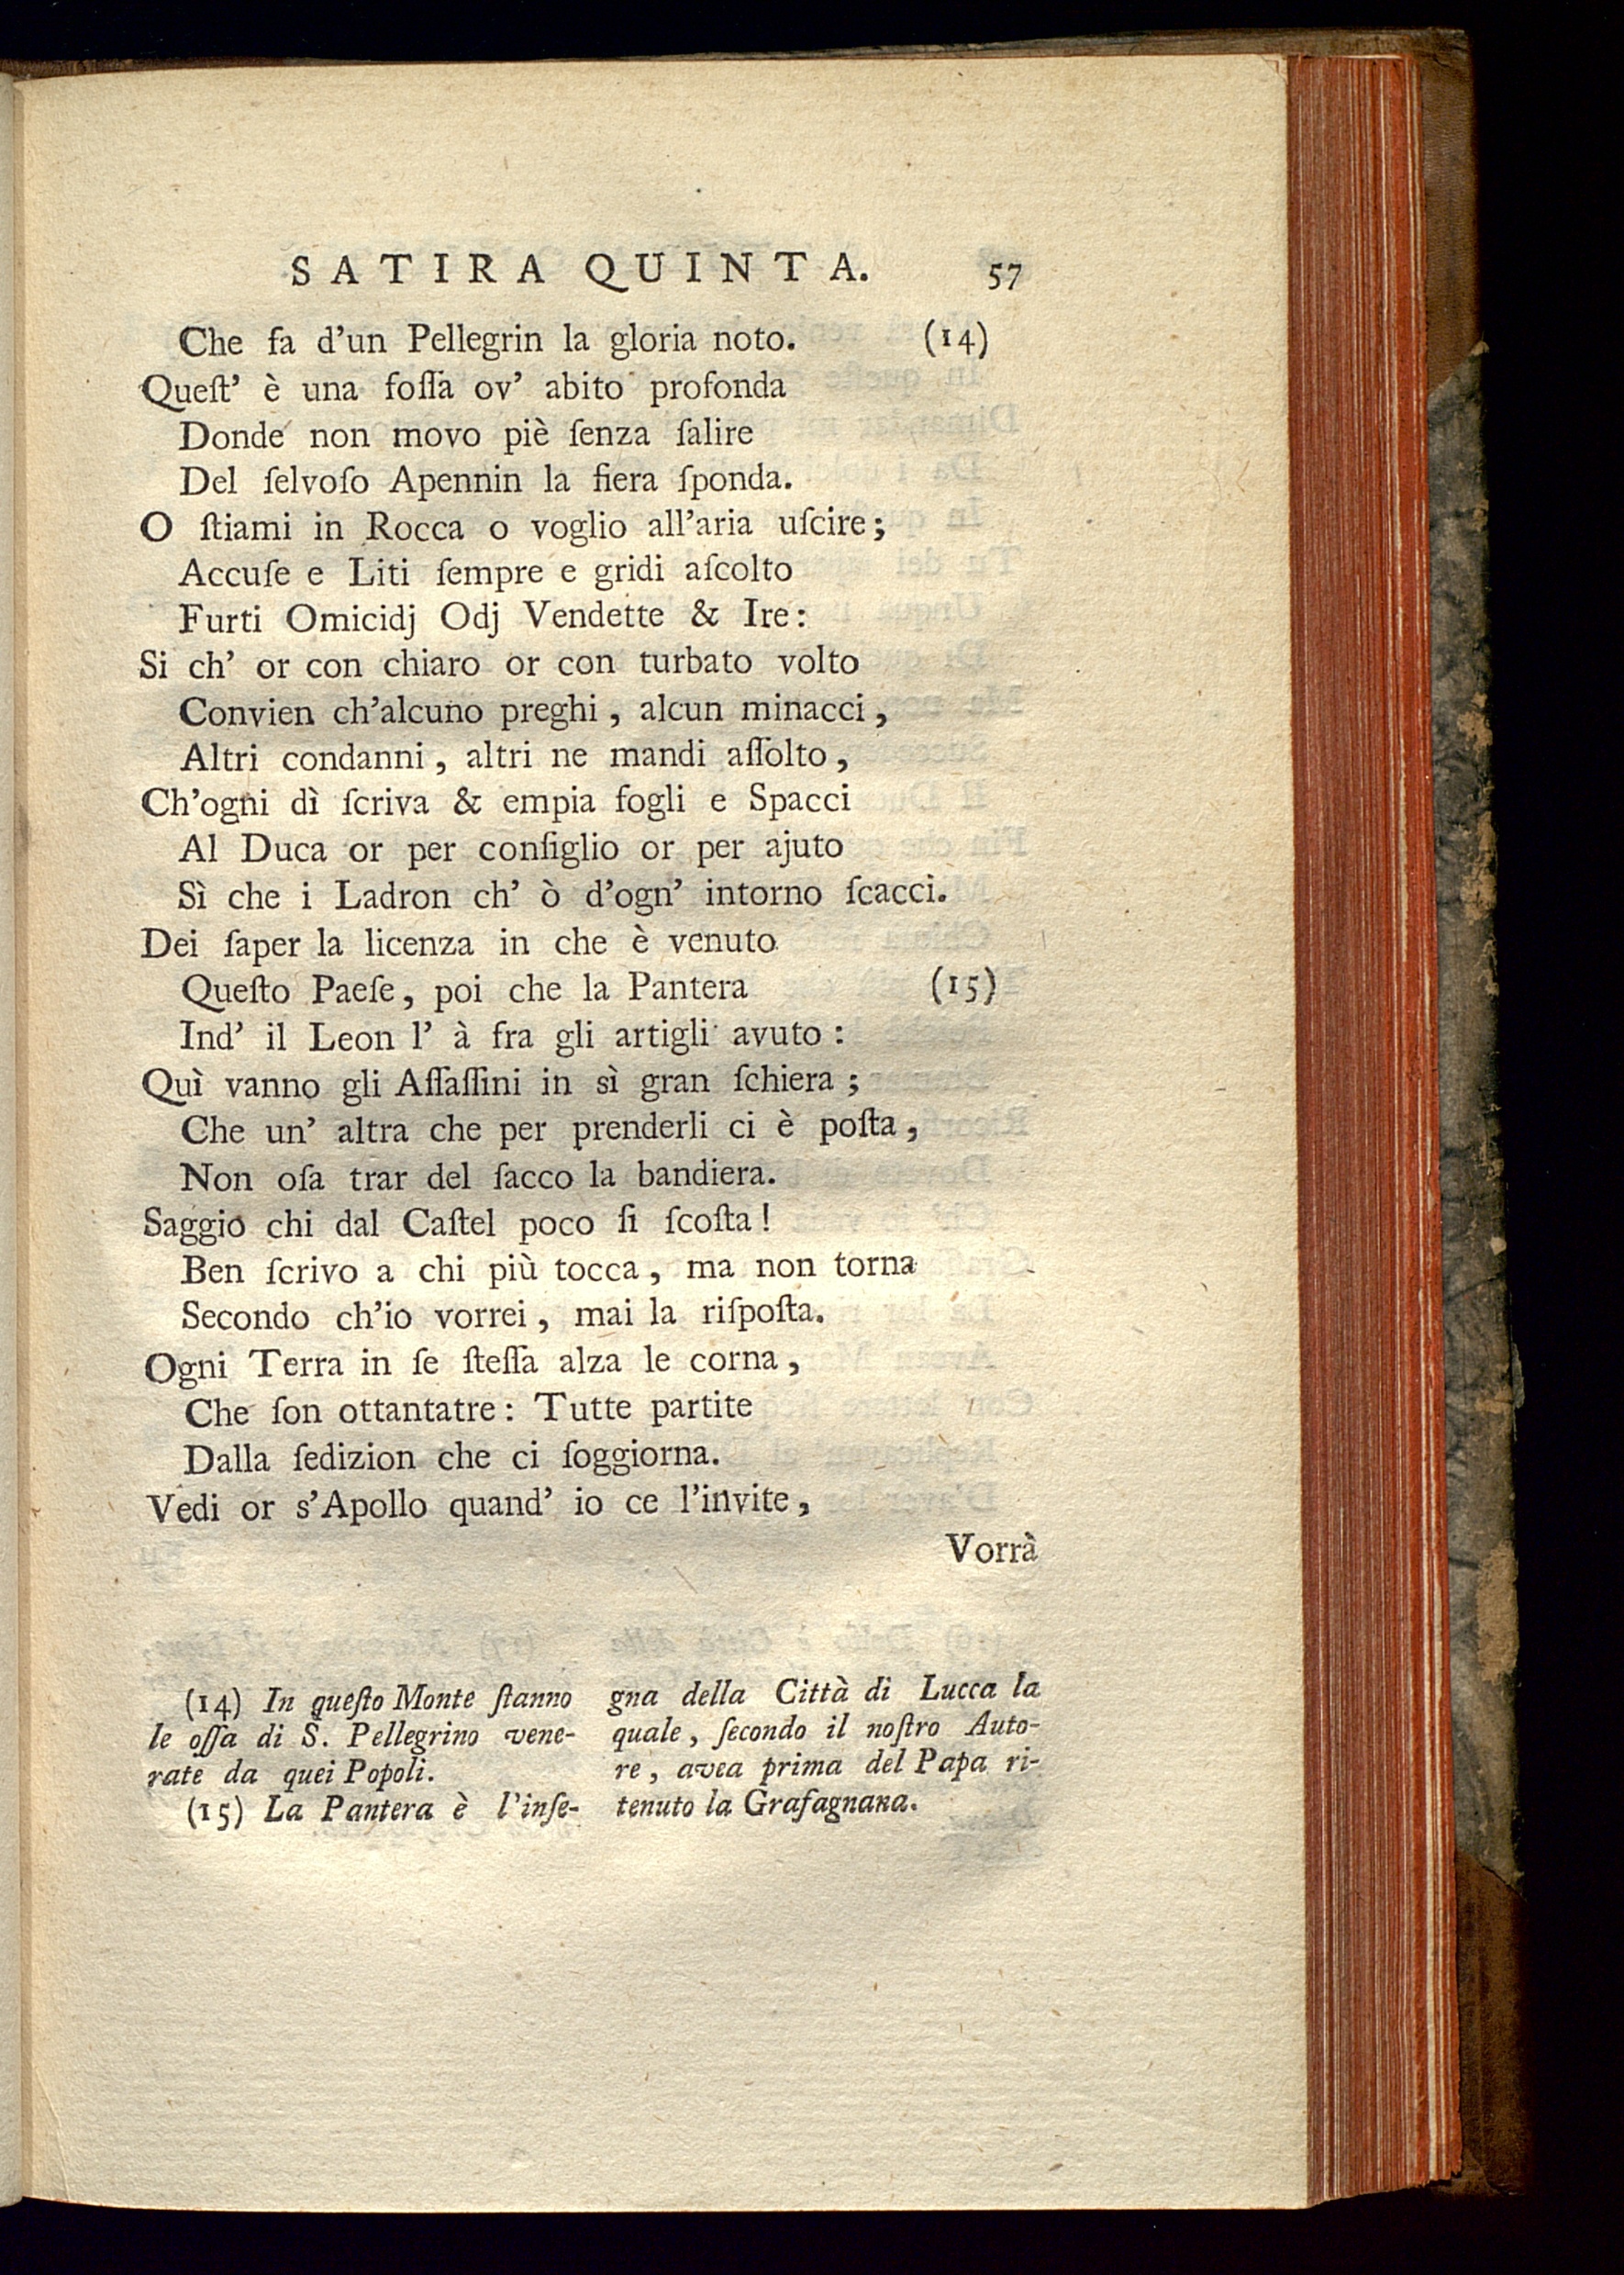 SATIRA QUINTA. 57
Che fa d'un Pellegrin la gloria noto. (14)
Queſt' è una foſſa ov' abito profonda
Donde non movo piè ſenza ſalire
Del ſelvoſo Apennin la fiera ſponda.
O ſtiami in Rocca o voglio all'aria uſcire;
Accuſe e Liti ſempre e gridi aſcolto
Furti Omicidj Odj Vendette & Ire:
Si ch' or con chiaro or con turbato volto
Convien ch'alcuno preghi, alcun minacci,
Altri condanni, altri ne mandi aſſolto,
Ch'ogni dì ſcriva & empia fogli e Spacci
Al Duca or per conſiglio or per ajuto
Sì che i Ladron ch' ò d'ogn' intorno ſcacci.
Dei ſaper la licenza in che è venuto
Queſto Paeſe, poi che la Pantera (15)
Ind' il Leon l' à fra gli artigli avuto:
Quì vanno gli Aſſaſſini in sì gran ſchiera;
Che un' altra che per prenderli ci è poſta,
Non oſa trar del ſacco la bandiera.
Saggio chi dal Caſtel poco ſi ſcoſta!
Ben ſcrivo a chi più tocca, ma non torna
Secondo ch'io vorrei, mai la riſpoſta.
Ogni Terra in ſe ſteſſa alza le corna,
Che ſon ottantatre: Tutte partite
Dalla ſedizion che ci ſoggiorna.
Vedi or s'Apollo quand' io ce l'invite,
Vorrà
(14) In queſto Monte ſtanno
le oſſa di S. Pellegrino vene-
rate da quei Popoli.
(15) La Pantera è l'inſe-
gna della Città di Lucca la
quale, ſecondo il noſtro Auto-
re, avea prima del Papa ri-
tenuto la Grafagnana.